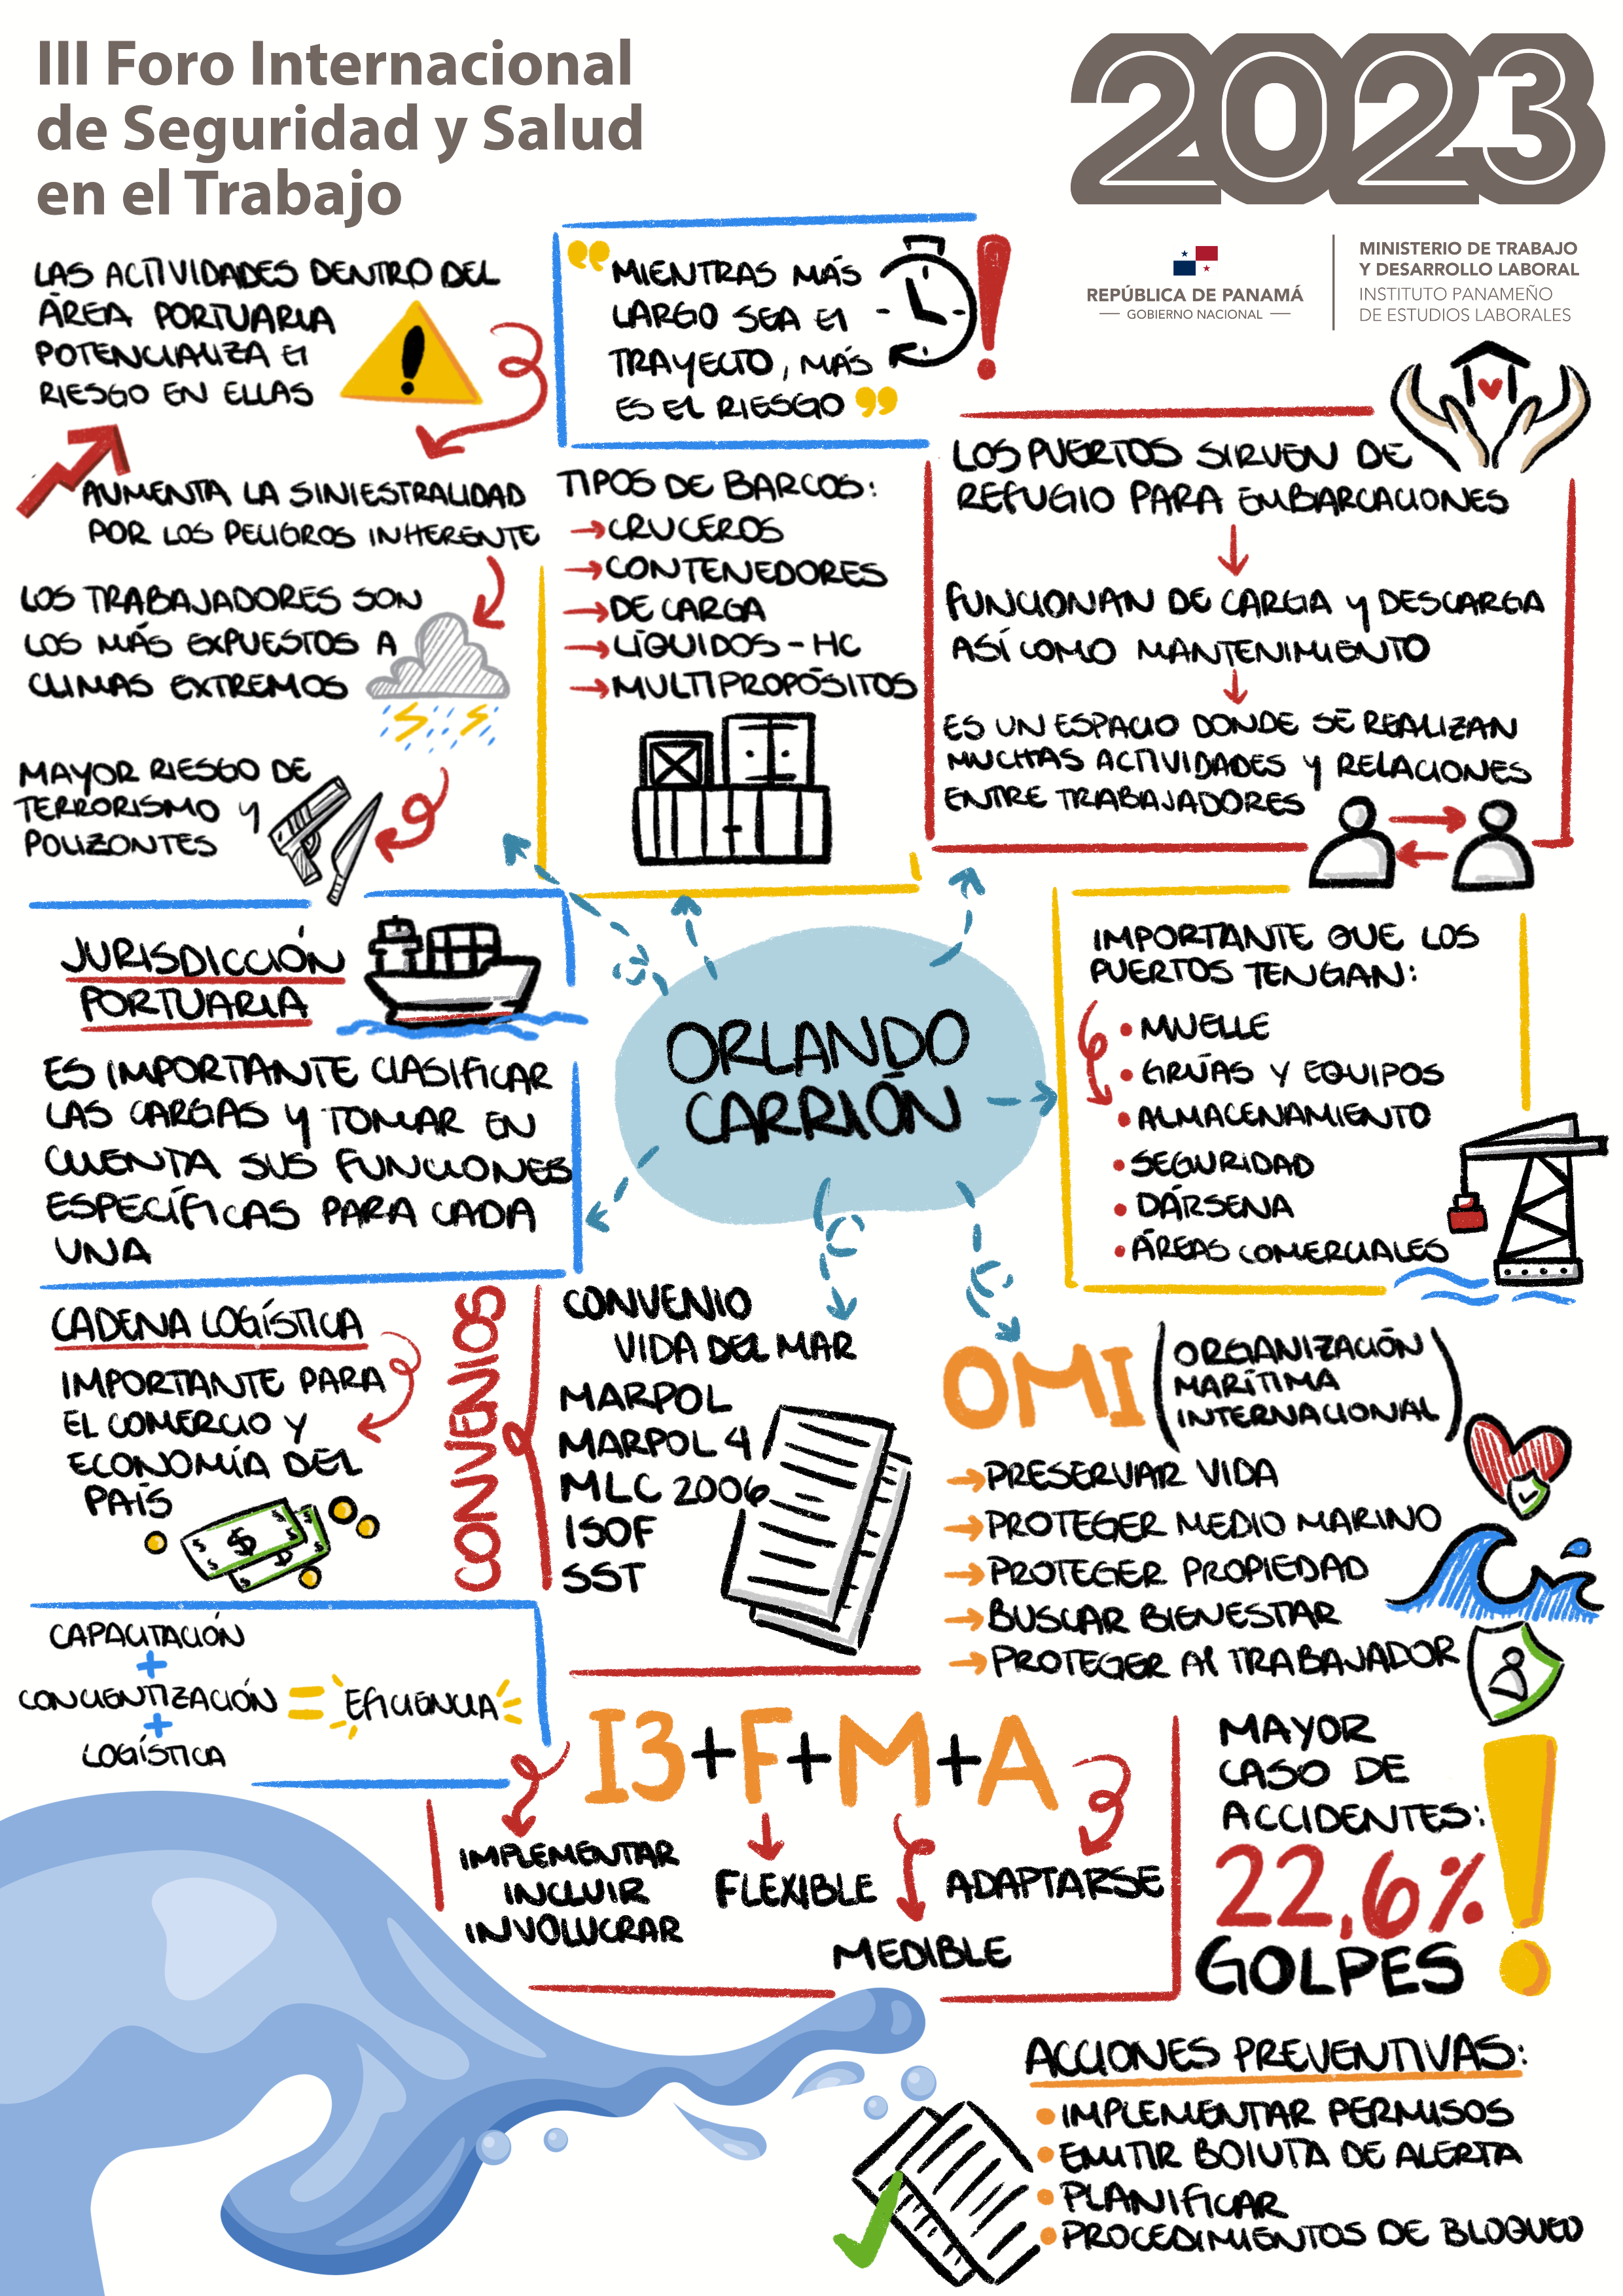 III Foro Internacional
de Seguridad y Salud
en el Trabajo
2023
REPÚBLICA DE PANAMÁ
— GOBIERNO NACIONAL —
MINISTERIO DE TRABAJO
Y DESARROLLO LABORAL
INSTITUTO PANAMEÑO
DE ESTUDIOS LABORALES
LAS ACTIVIDADES DENTRO DEL
ÁREA PORTUARIA
POTENCIALIZA El
RIESGO EN ELLAS
AUMENTA LA SINIESTRALIDAD
POR LOS PELIGROS INHERENTE
LOS TRABAJADORES SON
LOS MÁS EXPUESTOS A
CLIMAS EXTREMOS
MAYOR RIESGO DE
TERRORISMO Y
POLIZONTES
"MIENTRAS MÁS
LARGO SEA El
TRAYECTO, MÁS
ES EL RIESGO"
TIPOS DE BARCOS:
→CRUCEROS
→CONTENEDORES
→DE CARGA
→LÍQUIDOS-HC
→MULTIPROPÓSITOS
LOS PUERTOS SIRVEN DE
REFUGIO PARA EMBARCACIONES
FUNCIONAN DE CARGA Y DESCARGA
ASÍ COMO MANTENIMIENTO
ES UN ESPACIO DONDE SE REALIZAN
MUCHAS ACTIVIDADES Y RELACIONES
ENTRE TRABAJADORES
JURISDICCIÓN
PORTUARIA
ES IMPORTANTE ClASIFICAR
LAS CARGAS Y TOMAR EN
CUENTA SUS FUNCIONES
ESPECÍFICAS PARA CADA
UNA
ORLANDO
CARRIÓN
IMPORTANTE QUE LOS
PUERTOS TENGAN:
• MUELLE
• GRÚAS Y EQUIPOS
• ALMACENAMIENTO
• SEGURIDAD
• DÁRSENA
• ÁREAS COMERCIALES
CADENA LOGÍSTICA
IMPORTANTE PARA
EL COMERCIO Y
ECONOMÍA DEL
PAÍS
CONVENIOS
CONVENIO
VIDA DEL MAR
MARPOL
MARPOL 4
MLC 2006
ISOF
SST
OMI (ORGANIZACIÓN
MARÍTIMA
INTERNACIONAL)
→PRESERVAR VIDA
→PROTEGER MEDIO MARINO
→PROTEGER PROPIEDAD
→BUSCAR BIENESTAR
→PROTEGER Al TRABAJADOR
CAPACITACIÓN
+
CONCIENTIZACIÓN = EFICIENCIA
+
LOGÍSTICA
I3+F+M+A
IMPLEMENTAR
INCLUIR
INVOLUCRAR
FLEXIBLE
MEDIBLE
ADAPTARSE
MAYOR
CASO DE
ACCIDENTES:
22,6%
GOLPES
ACCIONES PREVENTIVAS:
• IMPLEMENTAR PERMISOS
• EMITIR BOlUTA DE ALERTA
• PLANIFICAR
• PROCEDIMIENTOS DE BLOQUEO